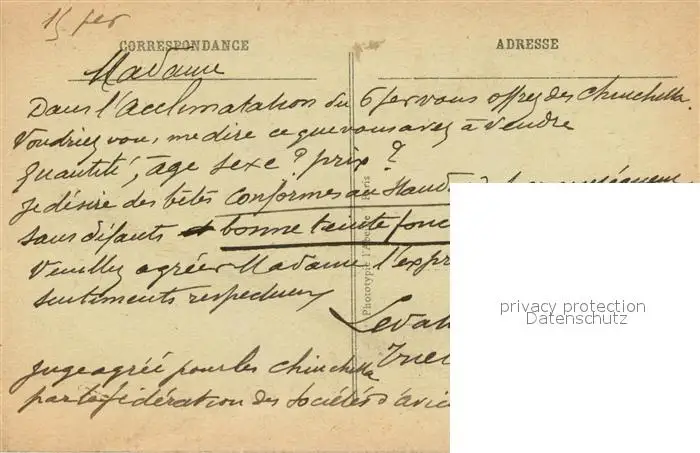 15 fev
CORRESPONDANCE
ADRESSE
Madame
Dans l'Acclimatation du 6 fev vous offrez des chinchilla.
Voudriez vous, me dire ce que vous avez à vendre
Quantité, âge sexe ? prix ?
Je désire des bêtes conformes au Stand
sans défauts et bonne teinte fonc
Veuillez agréer Madame l'expr
sentiments respectueux
Juge agréé pour les chinchilla
par la fédération des sociétés d'avic
Phototypie l'Abeille Paris
privacy protection
Datenschutz